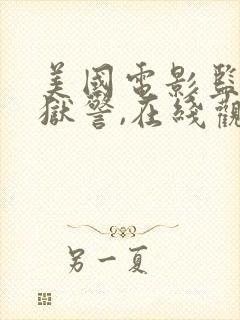 美國電影監
獄警,在綫觀
另一夏